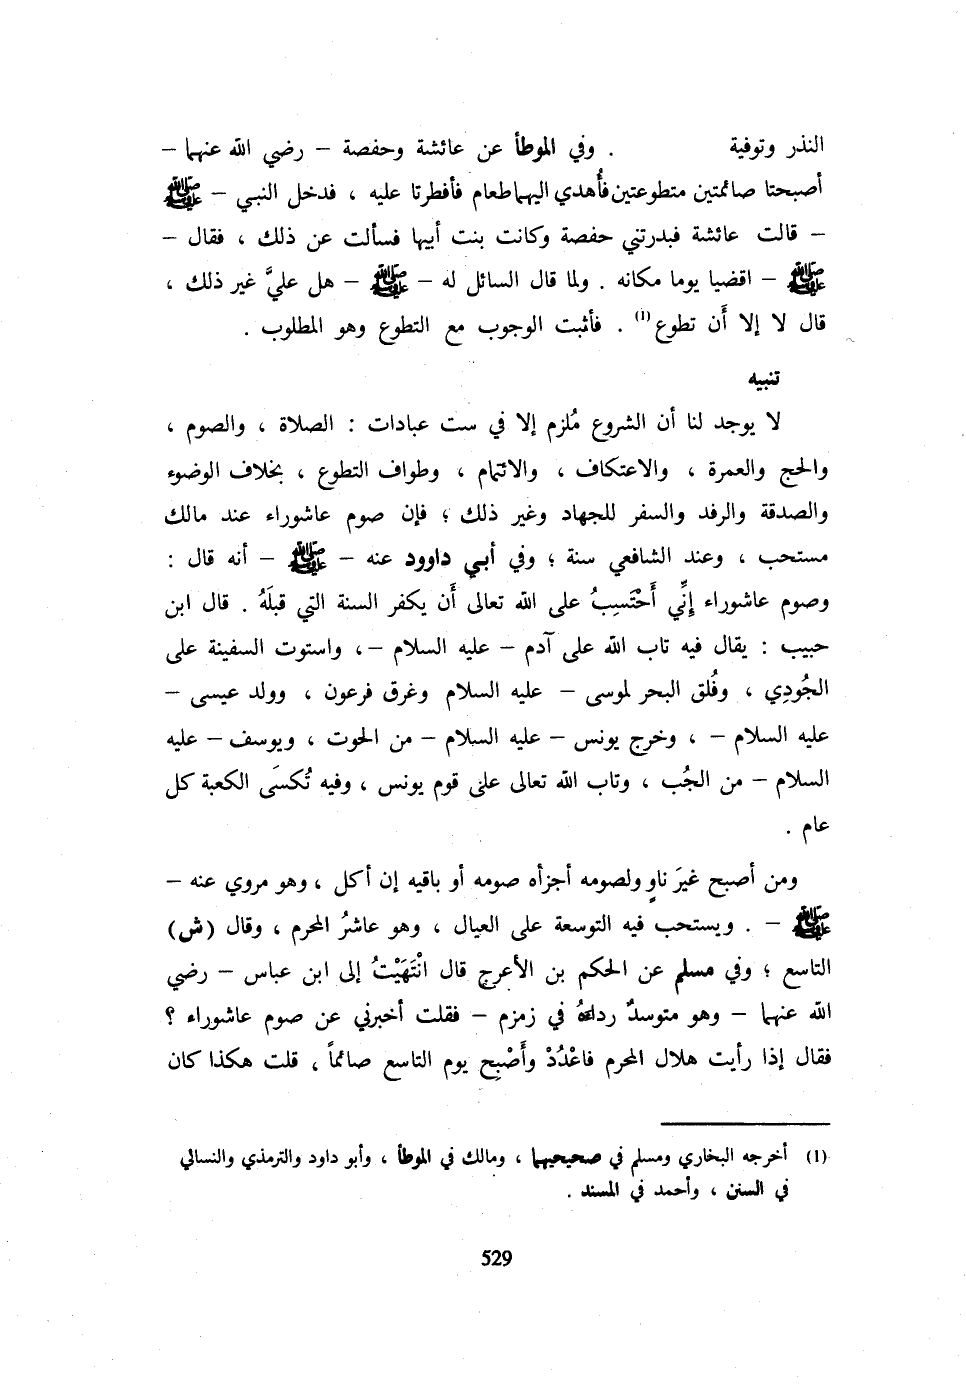 النذر وتوفية . وفي الموطأ عن عائشة وحفصة – رضي الله عنهما –
أصبحتا صائمتين متطوعتين فأُهدي اليهما طعام فأفطرتا عليه ، فدخل النبي – ﷺ
– قالت عائشة فبدرتني حفصة وكانت بنت أبيها فسألت عن ذلك ، فقال –
ﷺ – اقضيا يوما مكانه . ولما قال السائل له – ﷺ – هل عليَّ غير ذلك ،
قال لا إلا أَن تطوع (1) . فأثبت الوجوب مع التطوع وهو المطلوب .
تنبيه
لا يوجد لنا أن الشروع مُلزم إلا في ست عبادات : الصلاة ، والصوم ،
والحج والعمرة ، والاعتكاف ، والائتمام ، وطواف التطوع ، بخلاف الوضوء
والصدقة والرفد والسفر للجهاد وغير ذلك ؛ فإن صوم عاشوراء عند مالك
مستحب ، وعند الشافعي سنة ؛ وفي أبي داوود عنه – ﷺ – أنه قال :
وصوم عاشوراء إنِّي أَحْتَسِبُ على الله تعالى أَن يكفر السنة التي قبلَهُ . قال ابن
حبيب : يقال فيه تاب الله على آدم – عليه السلام –، واستوت السفينة على
الجُودِي ، وفُلق البحر لموسى – عليه السلام وغرق فرعون ، وولد عيسى –
عليه السلام – ، وخرج يونس – عليه السلام – من الحوت ، ويوسف – عليه
السلام – من الجُب ، وتاب الله تعالى على قوم يونس ، وفيه تُكسَى الكعبة كل
عام .
ومن أصبح غيرَ ناوٍ ولصومه أجزأه صومه أو باقيه إن أكل ، وهو مروي عنه –
ﷺ – . ويستحب فيه التوسعة على العيال ، وهو عاشرُ المحرم ، وقال (ش)
التاسع ؛ وفي مسلم عن الحكم بن الأعرج قال انْتَهَيْتُ إلى ابن عباس – رضي
الله عنهما – وهو متوسدٌ رداءَهُ في زمزم – فقلت أخبرني عن صوم عاشوراء ؟
فقال إذا رأيت هلال المحرم فاعْدُدْ وأَصْبِح يوم التاسع صائماً ، قلت هكذا كان
(1) أخرجه البخاري ومسلم في صحيحيهما ، ومالك في الموطأ ، وأبو داود والترمذي والنسائي
في السنن ، وأحمد في المسند .
529